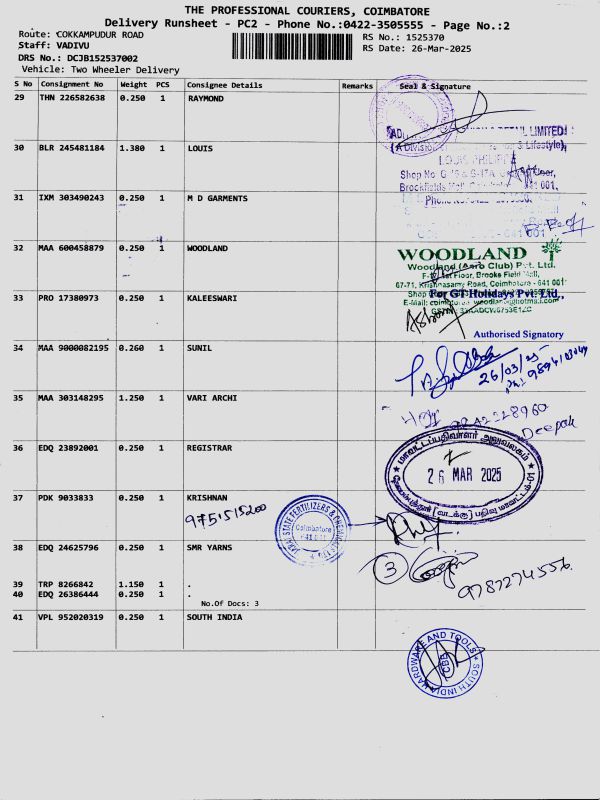 THE PROFESSIONAL COURIERS, COIMBATORE
Delivery Runsheet - PC2 - Phone No.:0422-3505555 - Page No.:2
Route: COKKAMPUDUR ROAD
RS No.: 1525370
Staff: VADIVU
RS Date: 26-Mar-2025
DRS No.: DCJB152537002
Vehicle: Two Wheeler Delivery
S No Consignment No Weight PCS Consignee Details Remarks Seal & Signature
29 THN 226582638 0.250 1 RAYMOND
LIMITED
30 BLR 245481184 1.380 1 LOUIS
& Lifestyle)
LOUIS PHILIPPE
Shop No
Brookfields Mall 641 001
31 IXM 303490243 0.250 1 M D GARMENTS
641 001
32 MAA 600458879 0.250 1 WOODLAND
WOODLAND
Woodland (Aero Club) Pvt. Ltd.
First Floor, Brooks Field Mall,
67-71, Krishnasamy Road, Coimbatore - 641 001
33 PRO 17380973 0.250 1 KALEESWARI
For GT Holidays Pvt. Ltd.,
Authorised Signatory
34 MAA 9000082195 0.260 1 SUNIL
26/03/25
35 MAA 303148295 1.250 1 VARI ARCHI
Deepak
36 EDQ 23892001 0.250 1 REGISTRAR
26 MAR 2025
37 PDK 9033833 0.250 1 KRISHNAN
9751515200
STATE FERTILIZERS &
Coimbatore
38 EDQ 24625796 0.250 1 SMR YARNS
3
9787274556
39 TRP 8266842 1.150 1 .
40 EDQ 26386444 0.250 1 .
No.Of Docs: 3
41 VPL 952020319 0.250 1 SOUTH INDIA
SOUTH INDIA HARDWARE AND TOOLS
CBE